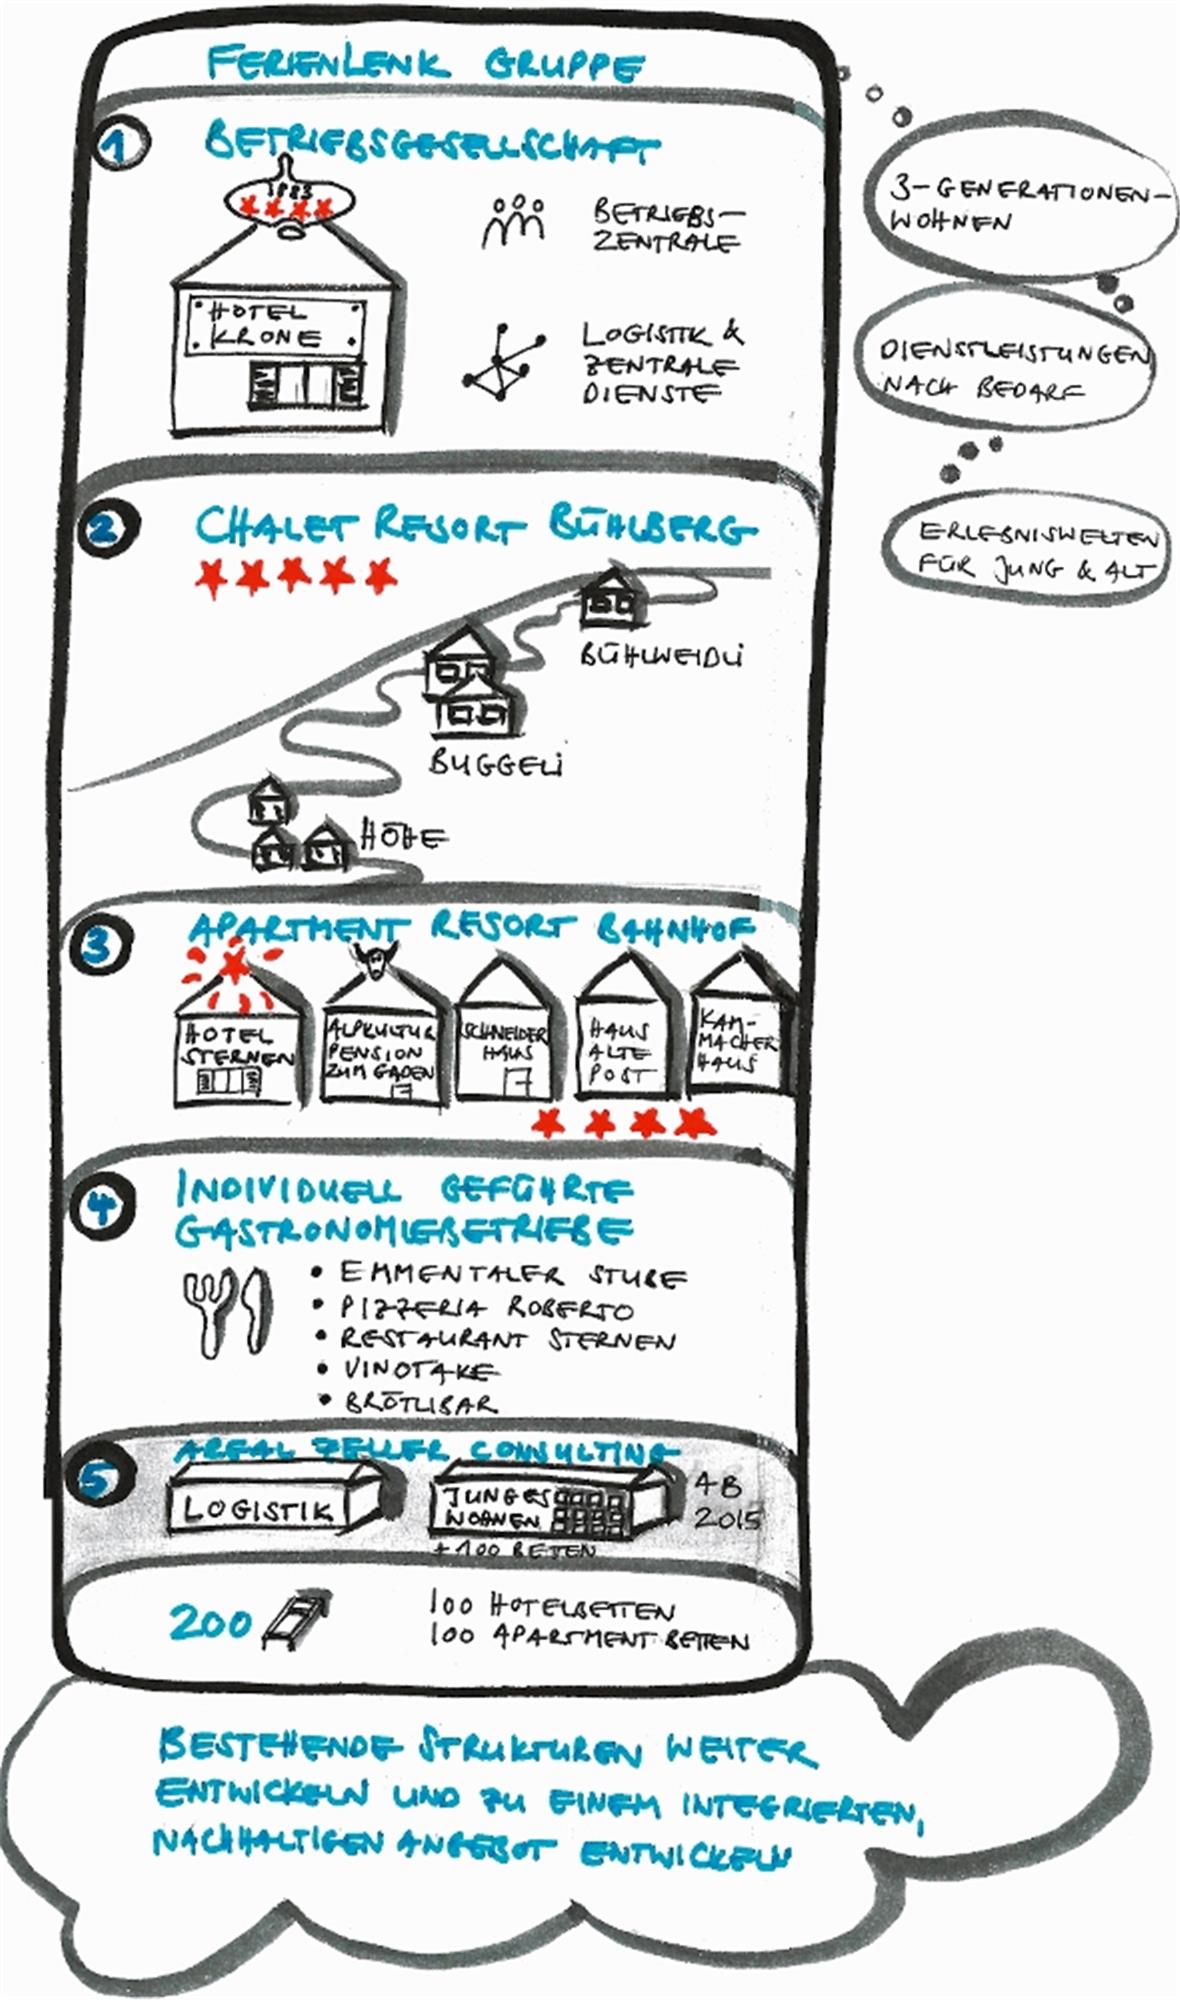 FERIENLENK GRUPPE
1 BETRIEBSGESELLSCHAFT
1883
HOTEL
KRONE
BETRIEBS-
ZENTRALE
LOGISTIK &
ZENTRALE
DIENSTE
3-GENERATIONEN-
WOHNEN
DIENSTLEISTUNGEN
NACH BEDARF
ERLEBNISWELTEN
FÜR JUNG & ALT
2 CHALET RESORT BÜHLBERG
BÜHLWEIDLI
BUGGELI
HÖHE
3 APARTMENT RESORT BAHNHOF
HOTEL
STERNEN
ALPKULTUR
PENSION
ZUM GADEN
SCHNEIDER
HAUS
HAUS
ALTE
POST
KAM-
MACHER
HAUS
4 INDIVIDUELL GEFÜHRTE
GASTRONOMIEBETRIEBE
• EMMENTALER STUBE
• PIZZERIA ROBERTO
• RESTAURANT STERNEN
• VINOTAKE
• BRÖTLIBAR
5 AREAL ZELLER CONSULTING
LOGISTIK
JUNGES
WOHNEN
+ 100 BETTEN
AB
2015
200
100 HOTELBETTEN
100 APARTMENT-BETTEN
BESTEHENDE STRUKTUREN WEITER
ENTWICKELN UND ZU EINEM INTEGRIERTEN,
NACHHALTIGEN ANGEBOT ENTWICKELN